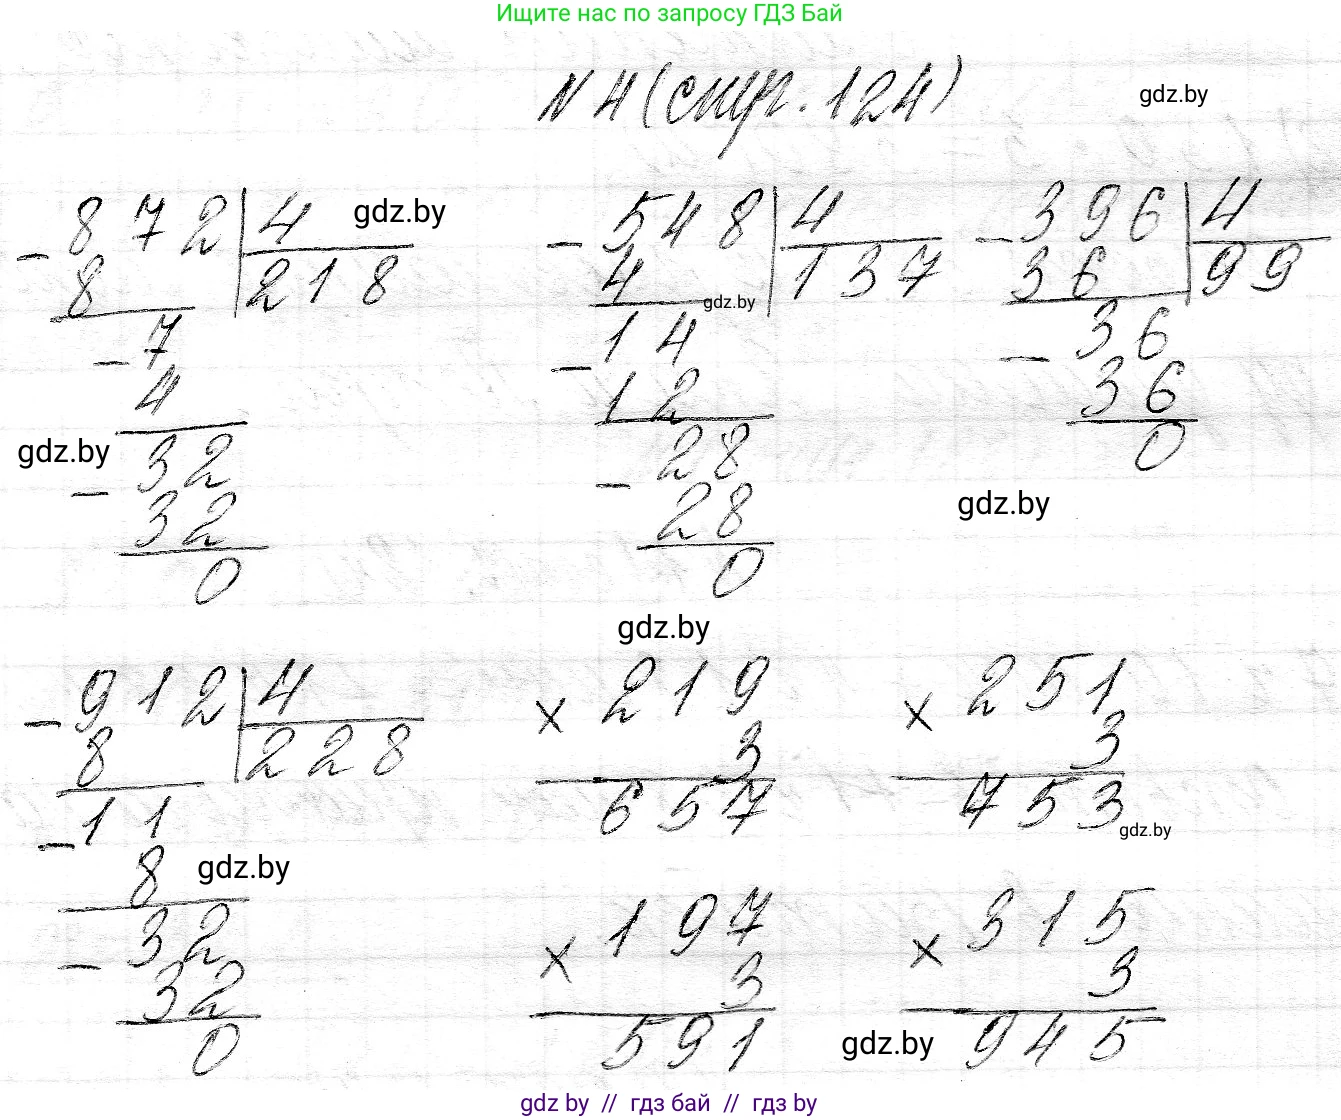 Ищите нас по запросу ГДЗ Бай
N 4 (стр. 124)
gdz.by
- 872 | 4
8 | 218
- 7
4
- 32
32
0
gdz.by
- 548 | 4
4 | 137
- 14
12
- 28
28
0
gdz.by
- 396 | 4
36 | 99
- 36
36
0
gdz.by
gdz.by
gdz.by
- 912 | 4
8 | 228
- 11
8
- 32
32
0
gdz.by
× 219
3
657
× 251
3
753
gdz.by
× 197
3
591
× 315
3
945
gdz.by
gdz by // гдз бай // гдз by